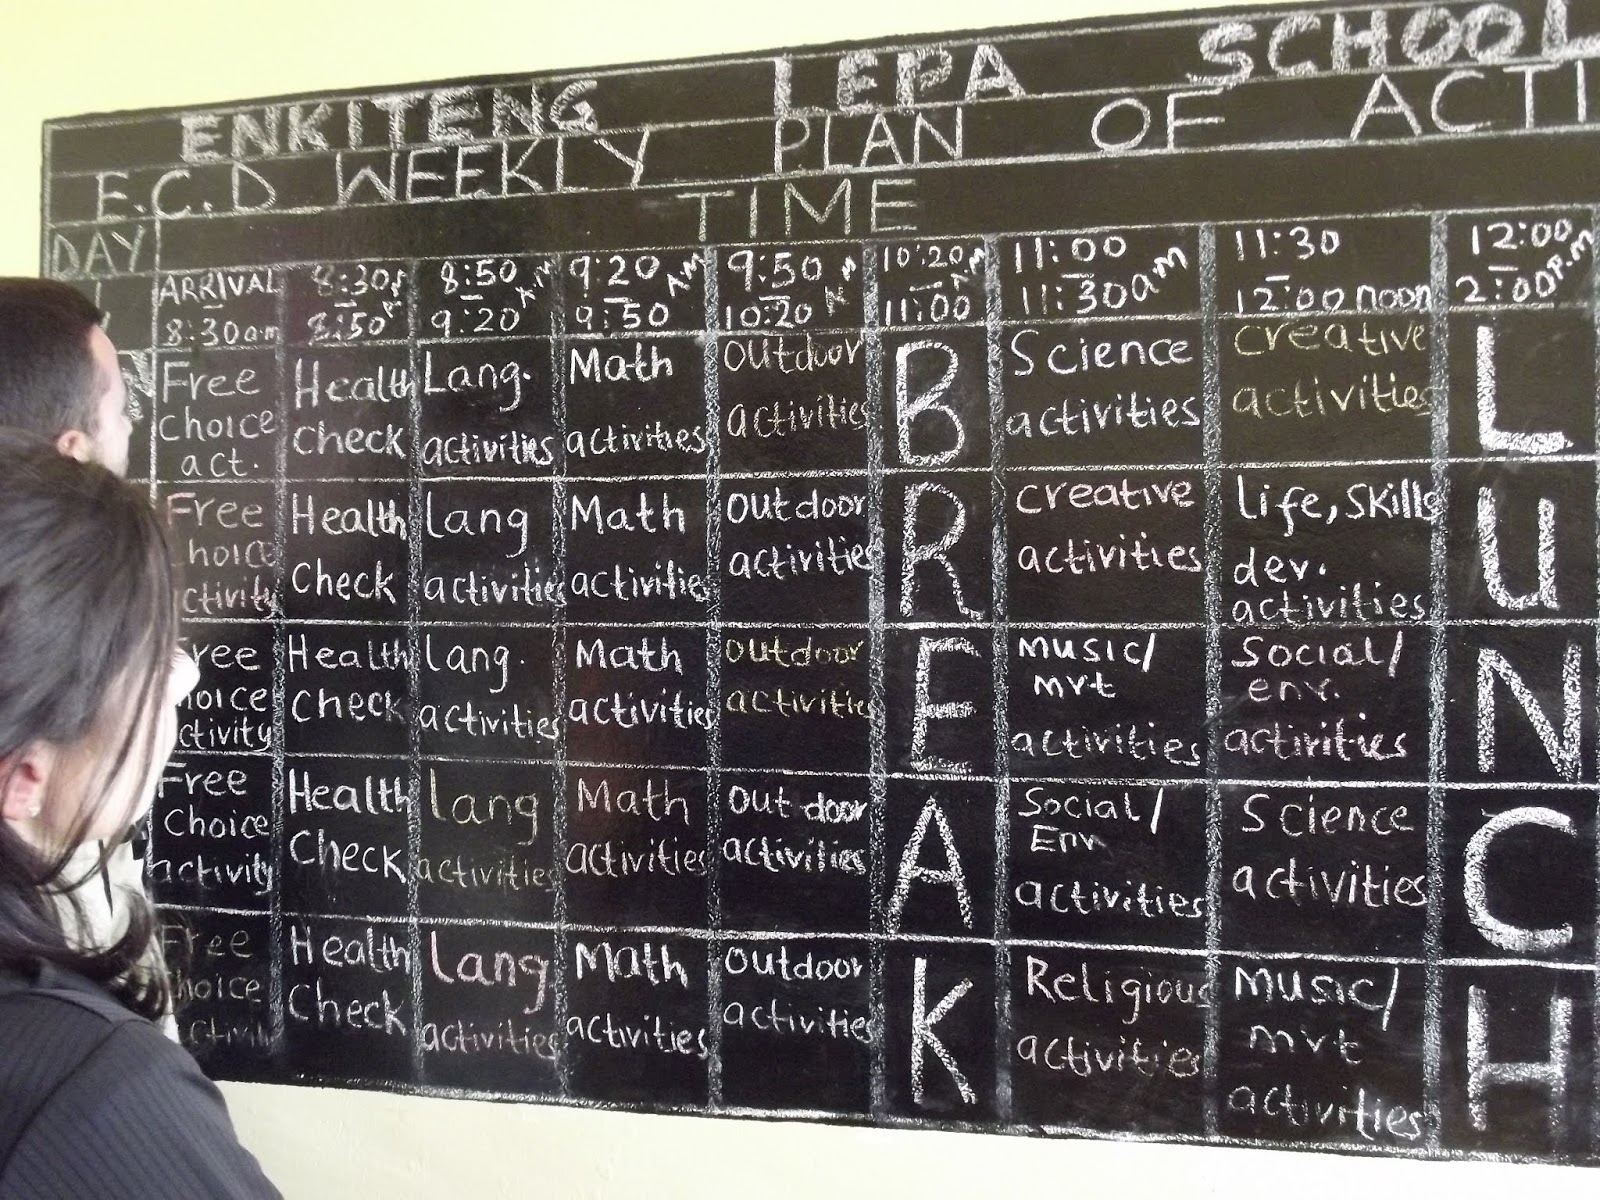 ENKITENG LEPA SCHOOL
E.C.D WEEKLY PLAN OF ACTI
TIME
DAY
ARRIVAL – 8:30am
8:30 – 8:50
8:50 – 9:20 A.M
9:20 – 9:50 A.M
9:50 – 10:20 A.M
10:20 – 11:00 A.M
11:00 – 11:30 a.m
11:30 – 12:00 noon
12:00 – 2:00 P.M
Free choice act.
Health check
Lang. activities
Math activities
outdoor activities
BREAK
Science activities
creative activities
LUNCH
Free choice activity
Health Check
Lang activities
Math activities
outdoor activities
creative activities
life, skills dev. activities
Free choice activity
Health Check
Lang. activities
Math activities
outdoor activities
music/ mvt activities
Social/ env. activities
Free Choice activity
Health Check
Lang activities
Math activities
outdoor activities
Social/ Env activities
Science activities
Free choice activity
Health Check
Lang. activities
Math activities
outdoor activities
Religious activities
music/ mvt activities